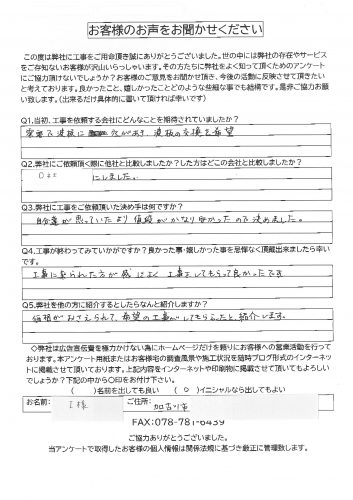 お客様のお声をお聞かせください
この度は弊社に工事をご用命頂き誠にありがとうございました。世の中には弊社の存在やサービス
をご存知ないお客様が沢山いらっしゃいます。その方たちに弊社をよく知って頂くためのアンケート
にご協力頂けないでしょうか？お客様のご意見をお聞かせ頂き、今後の活動に反映させて頂きたい
と考えております。良かったこと、嬉しかったことどのような些細な事でも結構です。是非ご協力お願
い致します。（出来るだけ具体的に書いて頂ければ幸いです）
Q1.当初、工事を依頼する会社にどんなことを期待されていましたか？
波板に 穴があき、波板の交換を希望
Q2.弊社にご依頼頂く際に他社と比較しましたか？した方はどこの会社と比較しましたか？
0社 にしました。
Q3.弊社に工事をご依頼頂いた決め手は何ですか？
自分達が思っていたより値段がかなり安かったので決めました。
Q4.工事が終わってみていかがですか？良かった事・嬉しかった事を忌憚なく頂戴出来ましたら幸い
です。
工事に来られた方が感じよく工事してもらって良かったです
Q5.弊社を他の方に紹介するとしたらなんと紹介しますか？
価格がおさえられて、希望の工事がしてもらえたと、紹介します。
◇弊社は広告宣伝費を極力かけない為にホームページだけを頼りにお客様への営業活動を行って
おります。本アンケート用紙またはお客様宅の調査風景や施工状況を随時ブログ形式のインターネッ
トに掲載させて頂いております。上記内容をインターネットや印刷物に掲載させて頂いてもよろしい
でしょうか？下記の中から〇印をお付け下さい。
（　）名前を出しても良い　（ ○ ）イニシャルなら出してもよい
お名前: I様 ご住所: 加古川市
FAX:078-781-6439
ご協力ありがとうございました。
当アンケートで取得したお客様の個人情報は関係法規に基づき厳正に管理致します。